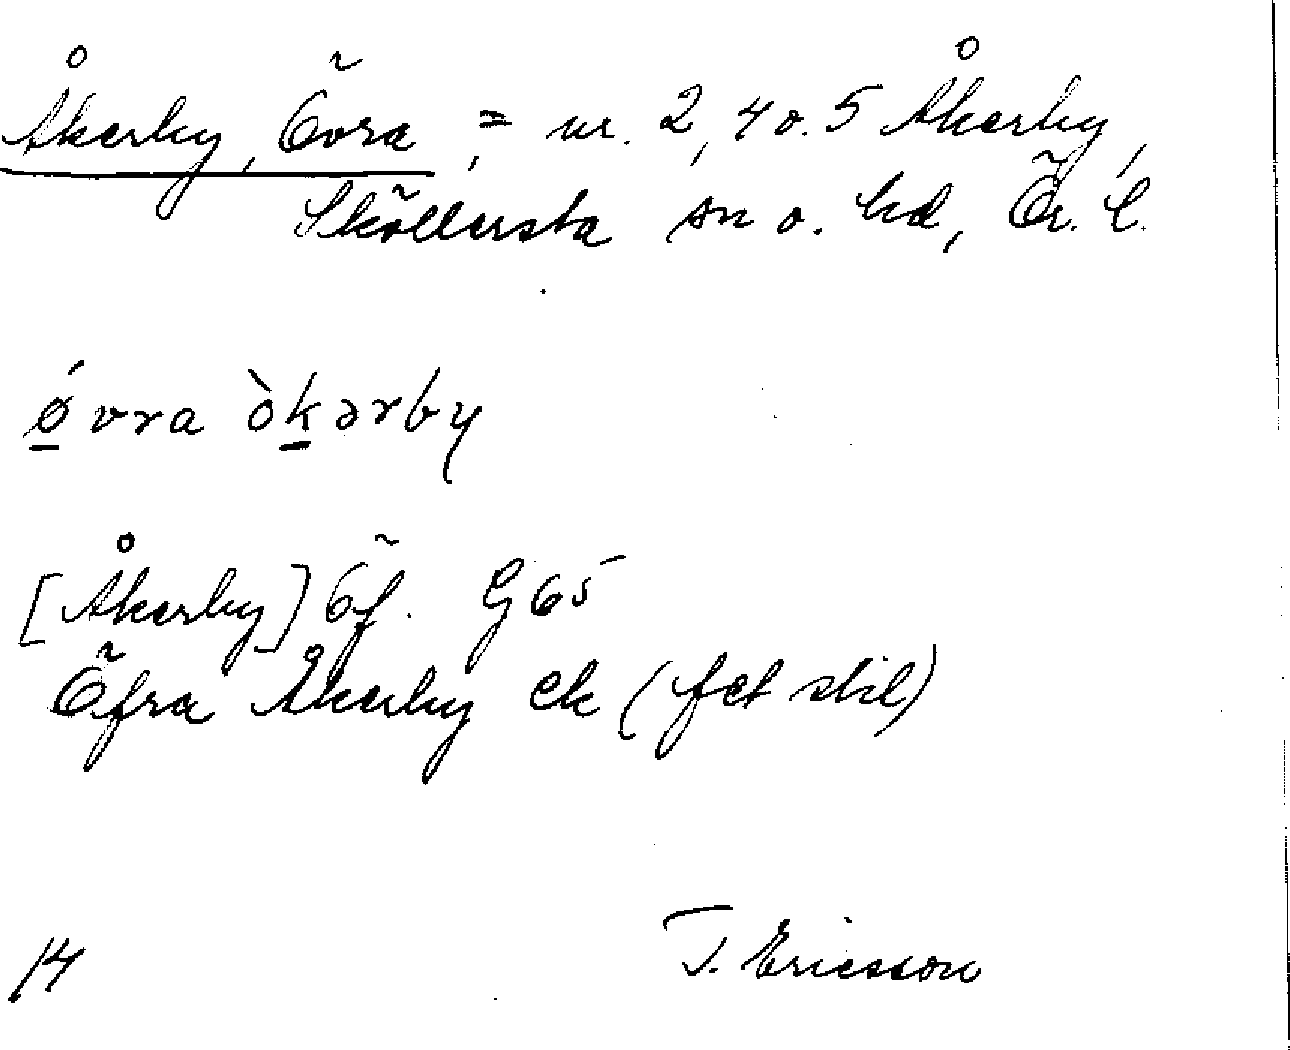 Åkerby, Övra, = nr. 2, 4 o. 5 Åkerby,
Sköllersta sn o. hd, Ör. l.
ǿvra òkərby
[Åkerby] Öf. G 65
Öfra Åkerby ek (fet stil)
14 T. Ericsson